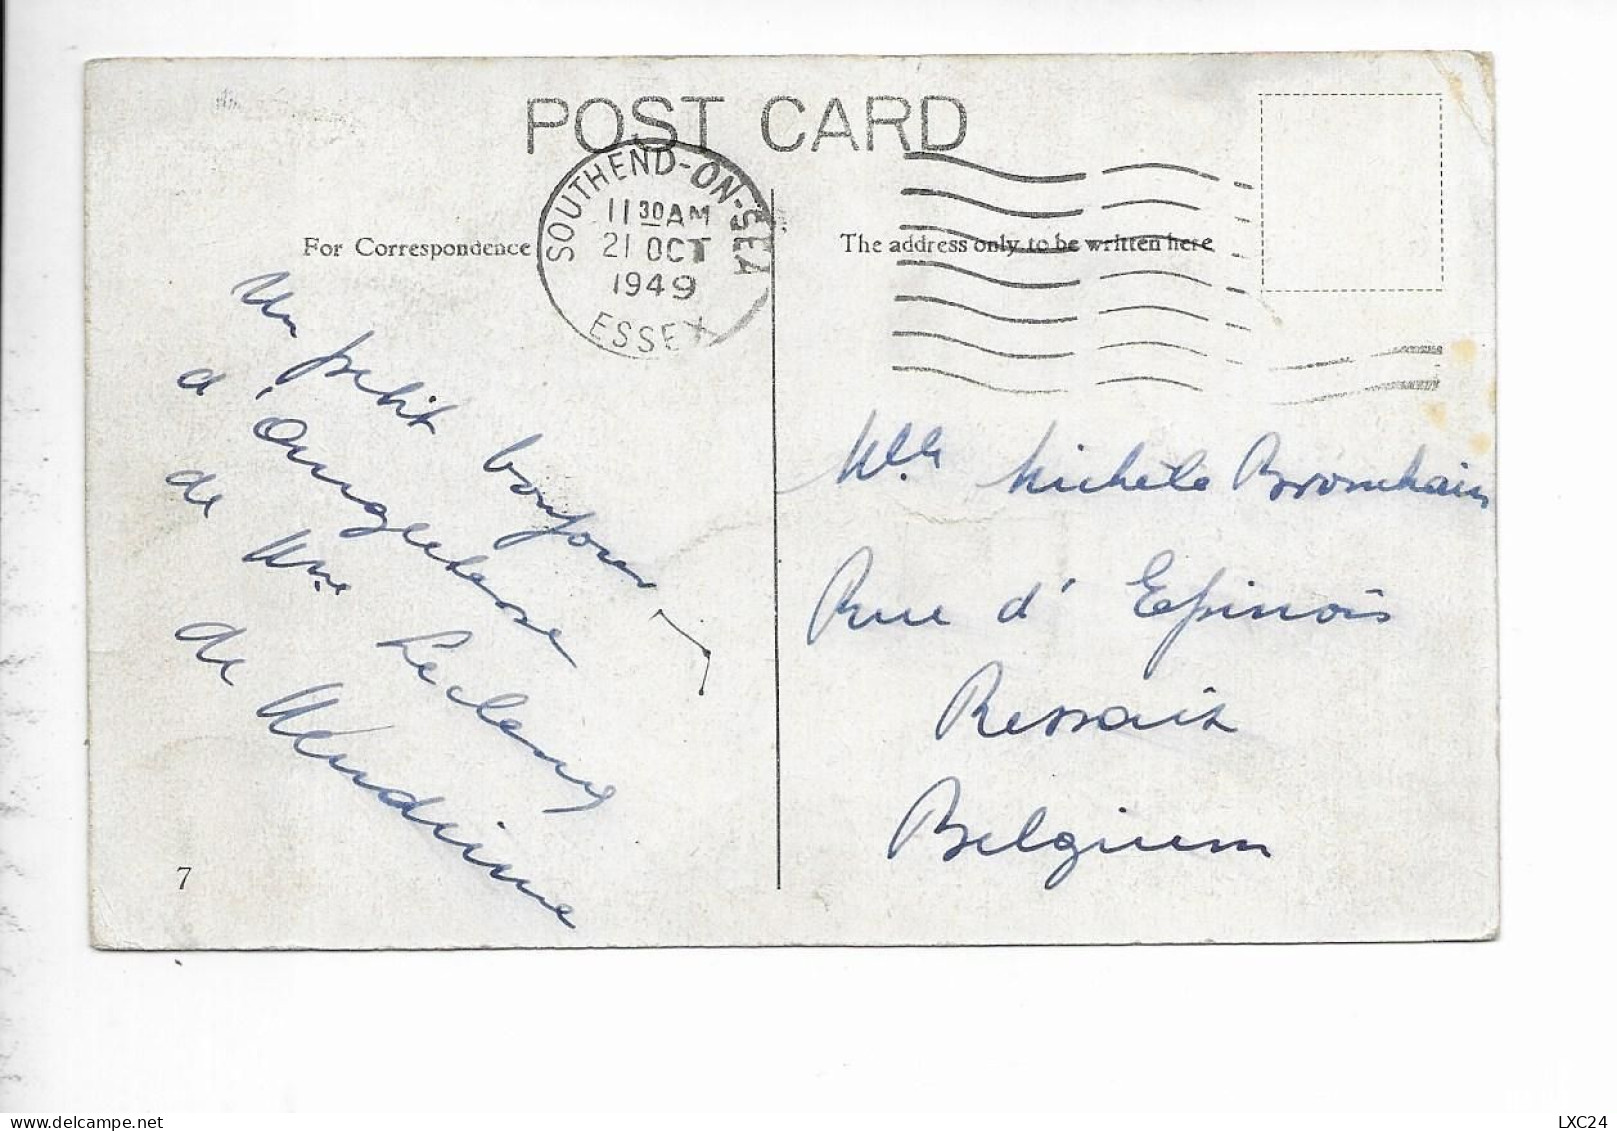 POST CARD
SOUTHEND-ON-SEA
11 30 AM
21 OCT
1949
ESSEX
For Correspondence
The address only to be written here
Un petit bonjour
d'Angleterre
de Mme Leclercq
de
Mlle Michèle
Rue d'Epinois
Ressaix
Belgium
7
LXC24